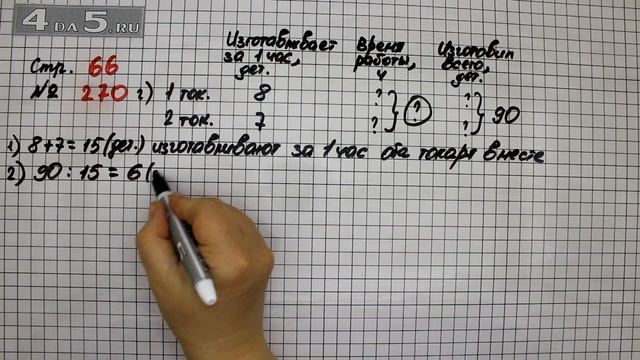 4DA5.RU
Изготавливает Время Изготовил
за 1 час, работы, всего,
дет. ч дет.
Стр. 66
№ 270 г) 1 ток. 8 ? ?
2 ток. 7 ? } ? ? } 90
1) 8+7=15(дет.) изготавливают за 1 час оба токаря вместе
2) 90:15=6(